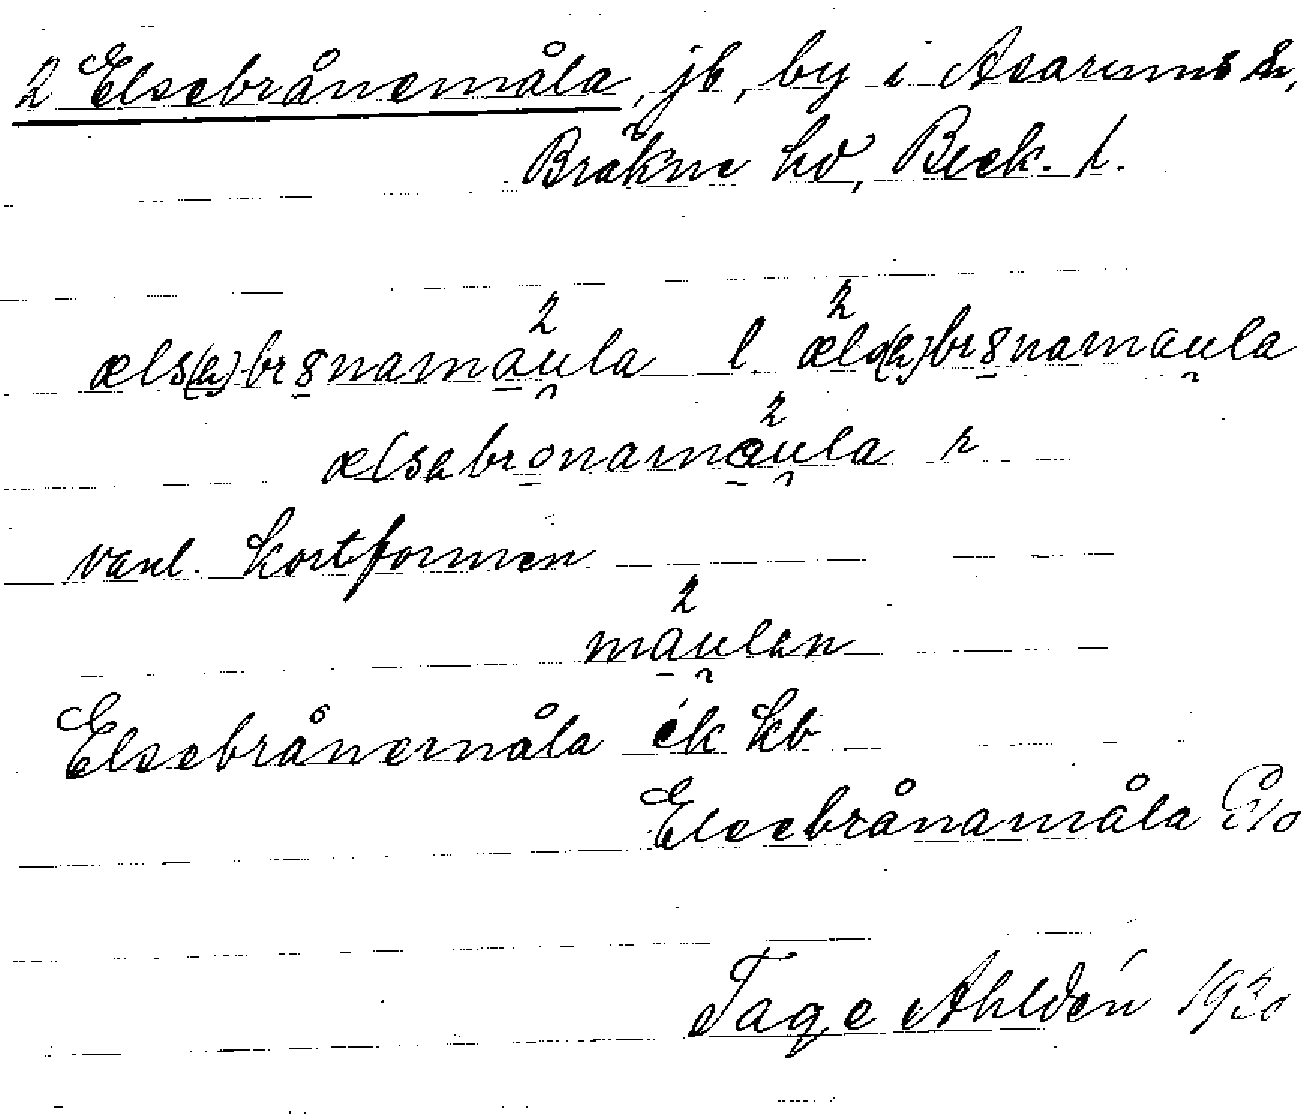 2 Elsebrånemåla, jb, by i Asarums sn,
Bräkne hd, Blek. l.
æls(ə)br8namau̯la l æls(ə)br8namau̯la
ælsəbronamau̯la r
vanl. kortformen
mau̯lən
Elsebrånemåla ek kb
Elsebrånamåla
Tage Ahldén 1930